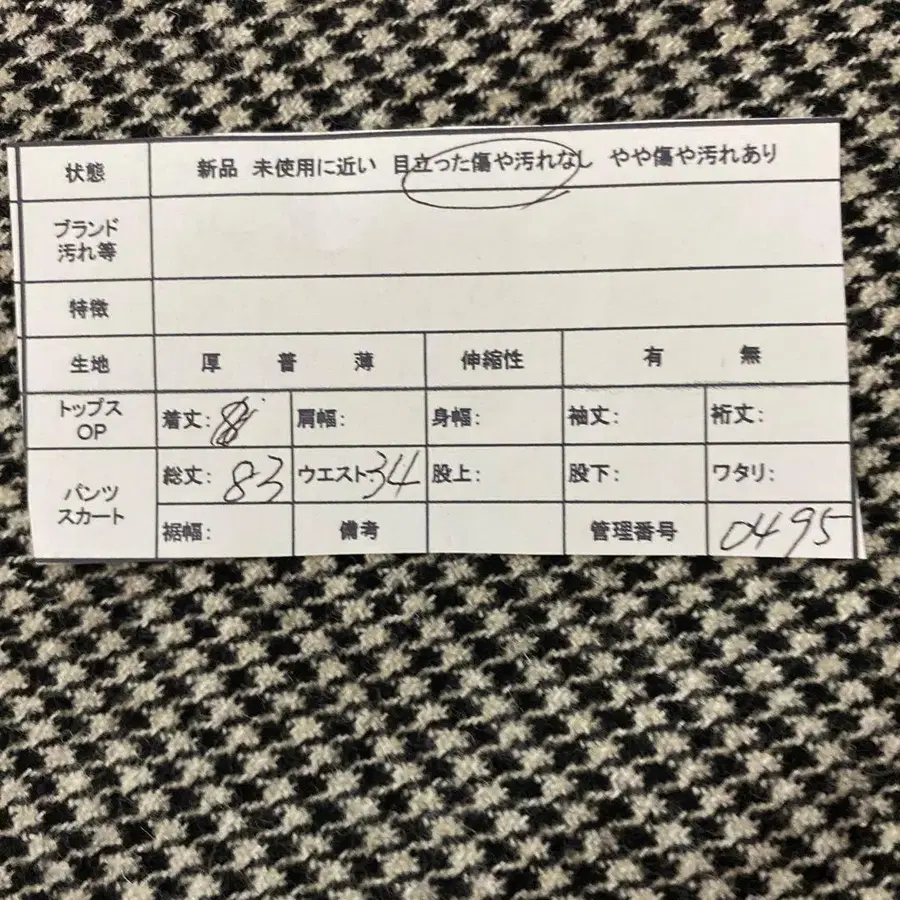 状態 新品 未使用に近い 目立った傷や汚れなし やや傷や汚れあり
ブランド
汚れ等
特徴
生地 厚 普 薄 伸縮性 有 無
トップス
OP
着丈: 肩幅: 身幅: 袖丈: 裄丈:
パンツ
スカート
総丈: 83 ウエスト: 34 股上: 股下: ワタリ:
裾幅: 備考 管理番号 0495